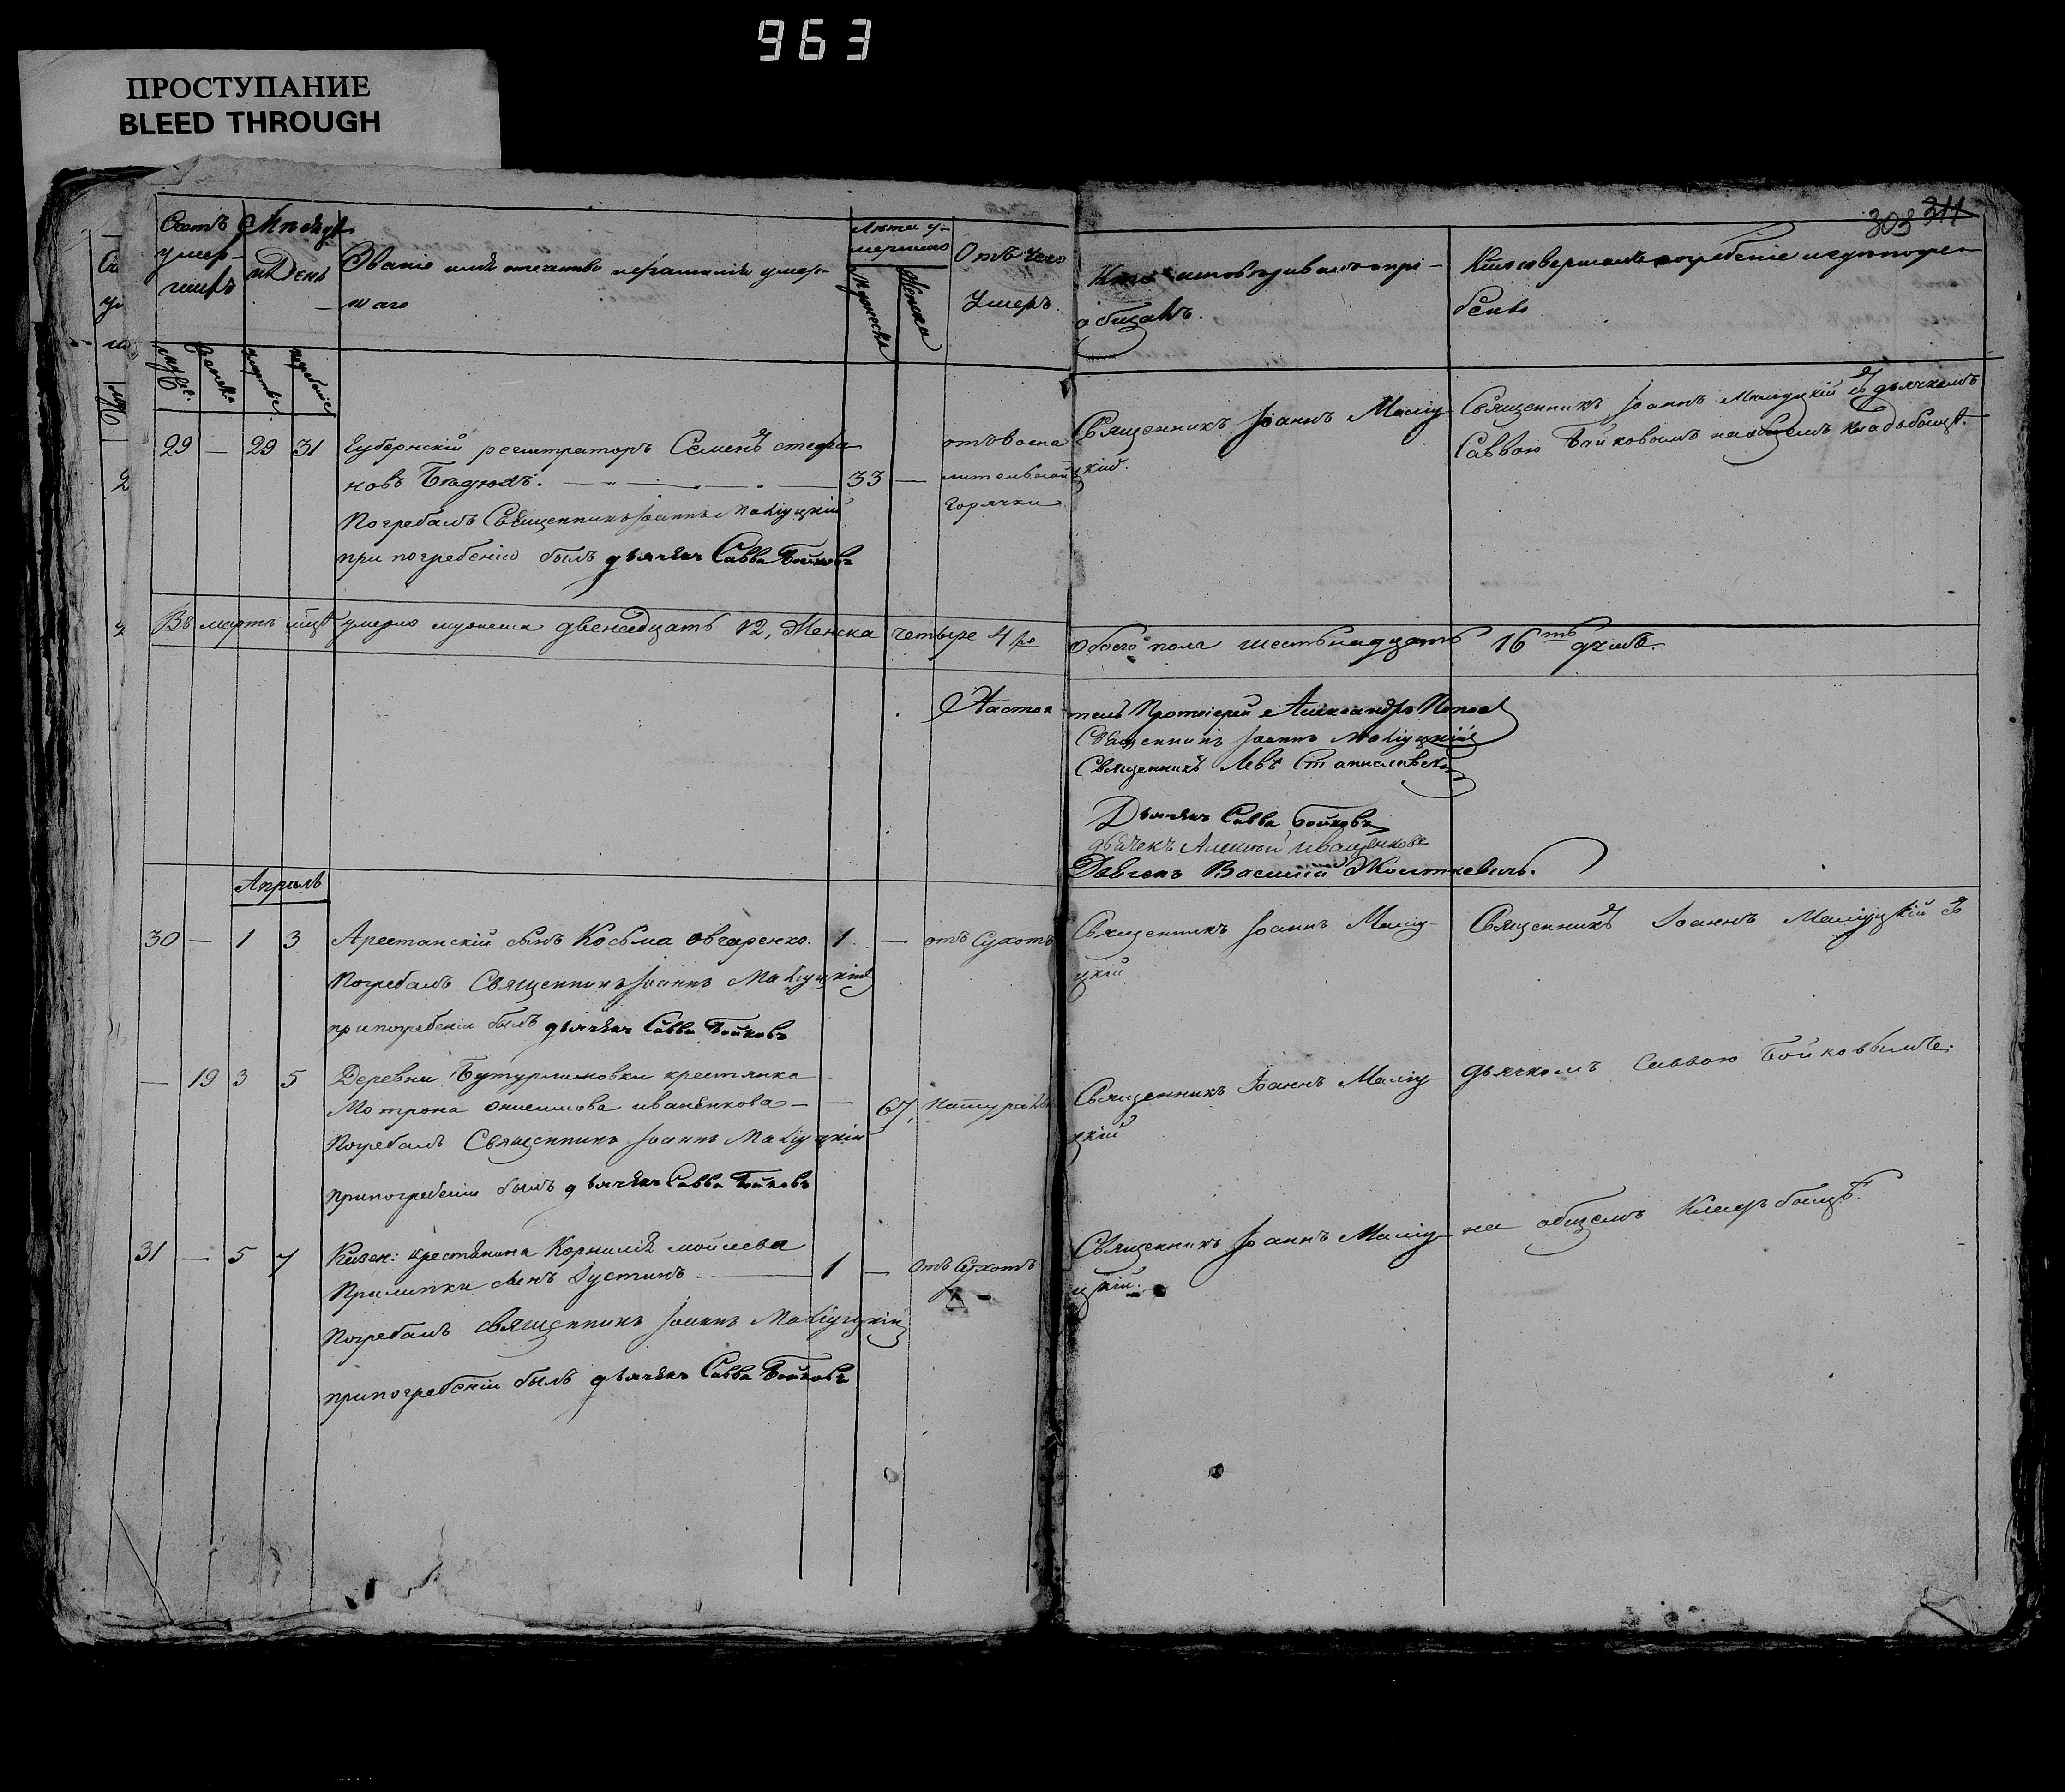 963
ПРОСТУПАНИЕ
BLEED THROUGH
303 311
Счетъ умер-шихъ
Мѣсяцъ и День
Званіе имя отечество и фамилія умер-
шаго
Лѣта у-
мершаго
Отъ чего
умеръ.
Кто исповѣдивалъ и прі-
общалъ.
Кто совершалъ погребеніе и гдѣ погре-
бены
29 — 29 31 Губернскій регистраторъ Семенъ Стефа
новъ 33 —
отъ воспа
лительной
горячки
Погребалъ Священникъ Іоаннъ Маліуцкій
при погребеніи былъ дьячекъ Савва Бойковъ
Священникъ Іоаннъ Маліу-
цкій.
Священникъ Іоаннъ Маліуцкій съ дьячкомъ
Саввою Бойковымъ на общемъ кладбищѣ.
Въ мартѣ м̃цѣ умерло мужеска двенадцать 12, Женска четыре 4ре Обоего пола шестьнадцать 16ть душъ.
Настоятель Протоіерей Александръ Попов
Священникъ Іоаннъ Маліуцкій
Священникъ Левъ
Дьячекъ Савва Бойковъ
дьячекъ Алексѣй
Василій
Апрѣль
30 — 1 3 Арестанскій сынъ Косьма Овчаренко. 1 — отъ Сухотъ
Погребалъ Священникъ Іоаннъ Маліуцкій
при погребеніи былъ дьячекъ Савва Бойковъ
Священникъ Іоаннъ Маліу-
цкій
Священникъ Іоаннъ Маліуцкій съ
— 19 3 5 Деревни Бутурлиновки крестянка
Мотрона Онисимова Иваненкова — 67, Натурально
Погребалъ Священникъ Іоаннъ Маліуцкій
при погребеніи былъ дьячекъ Савва Бойковъ
Священникъ Іоаннъ Маліу-
цкій
дьячкомъ Саввою Бойковымъ.
31 — 5 7 Казен: крестянина Корнилія Мойсеева
Прилипки сынъ Іустинъ — 1 — отъ Сухотъ
Погребалъ священникъ Іоаннъ Маліуцкій
при погребеніи былъ дьячекъ Савва Бойковъ
Священникъ Іоаннъ Маліу-
цкій.
на общемъ Кладбищѣ.